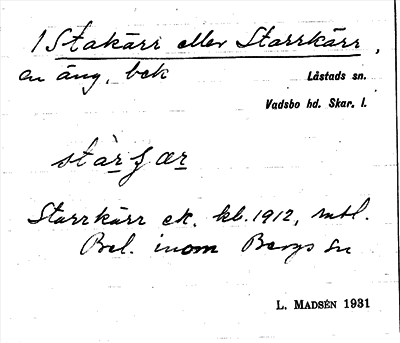 1 Stakärr eller Starrkärr,
en äng, bek
Låstads sn.
Vadsbo hd. Skar. l.
Starrkärr ek. kbl. 1912, mtl.
Bel. inom Bergs sn
L. MADSÉN 1931